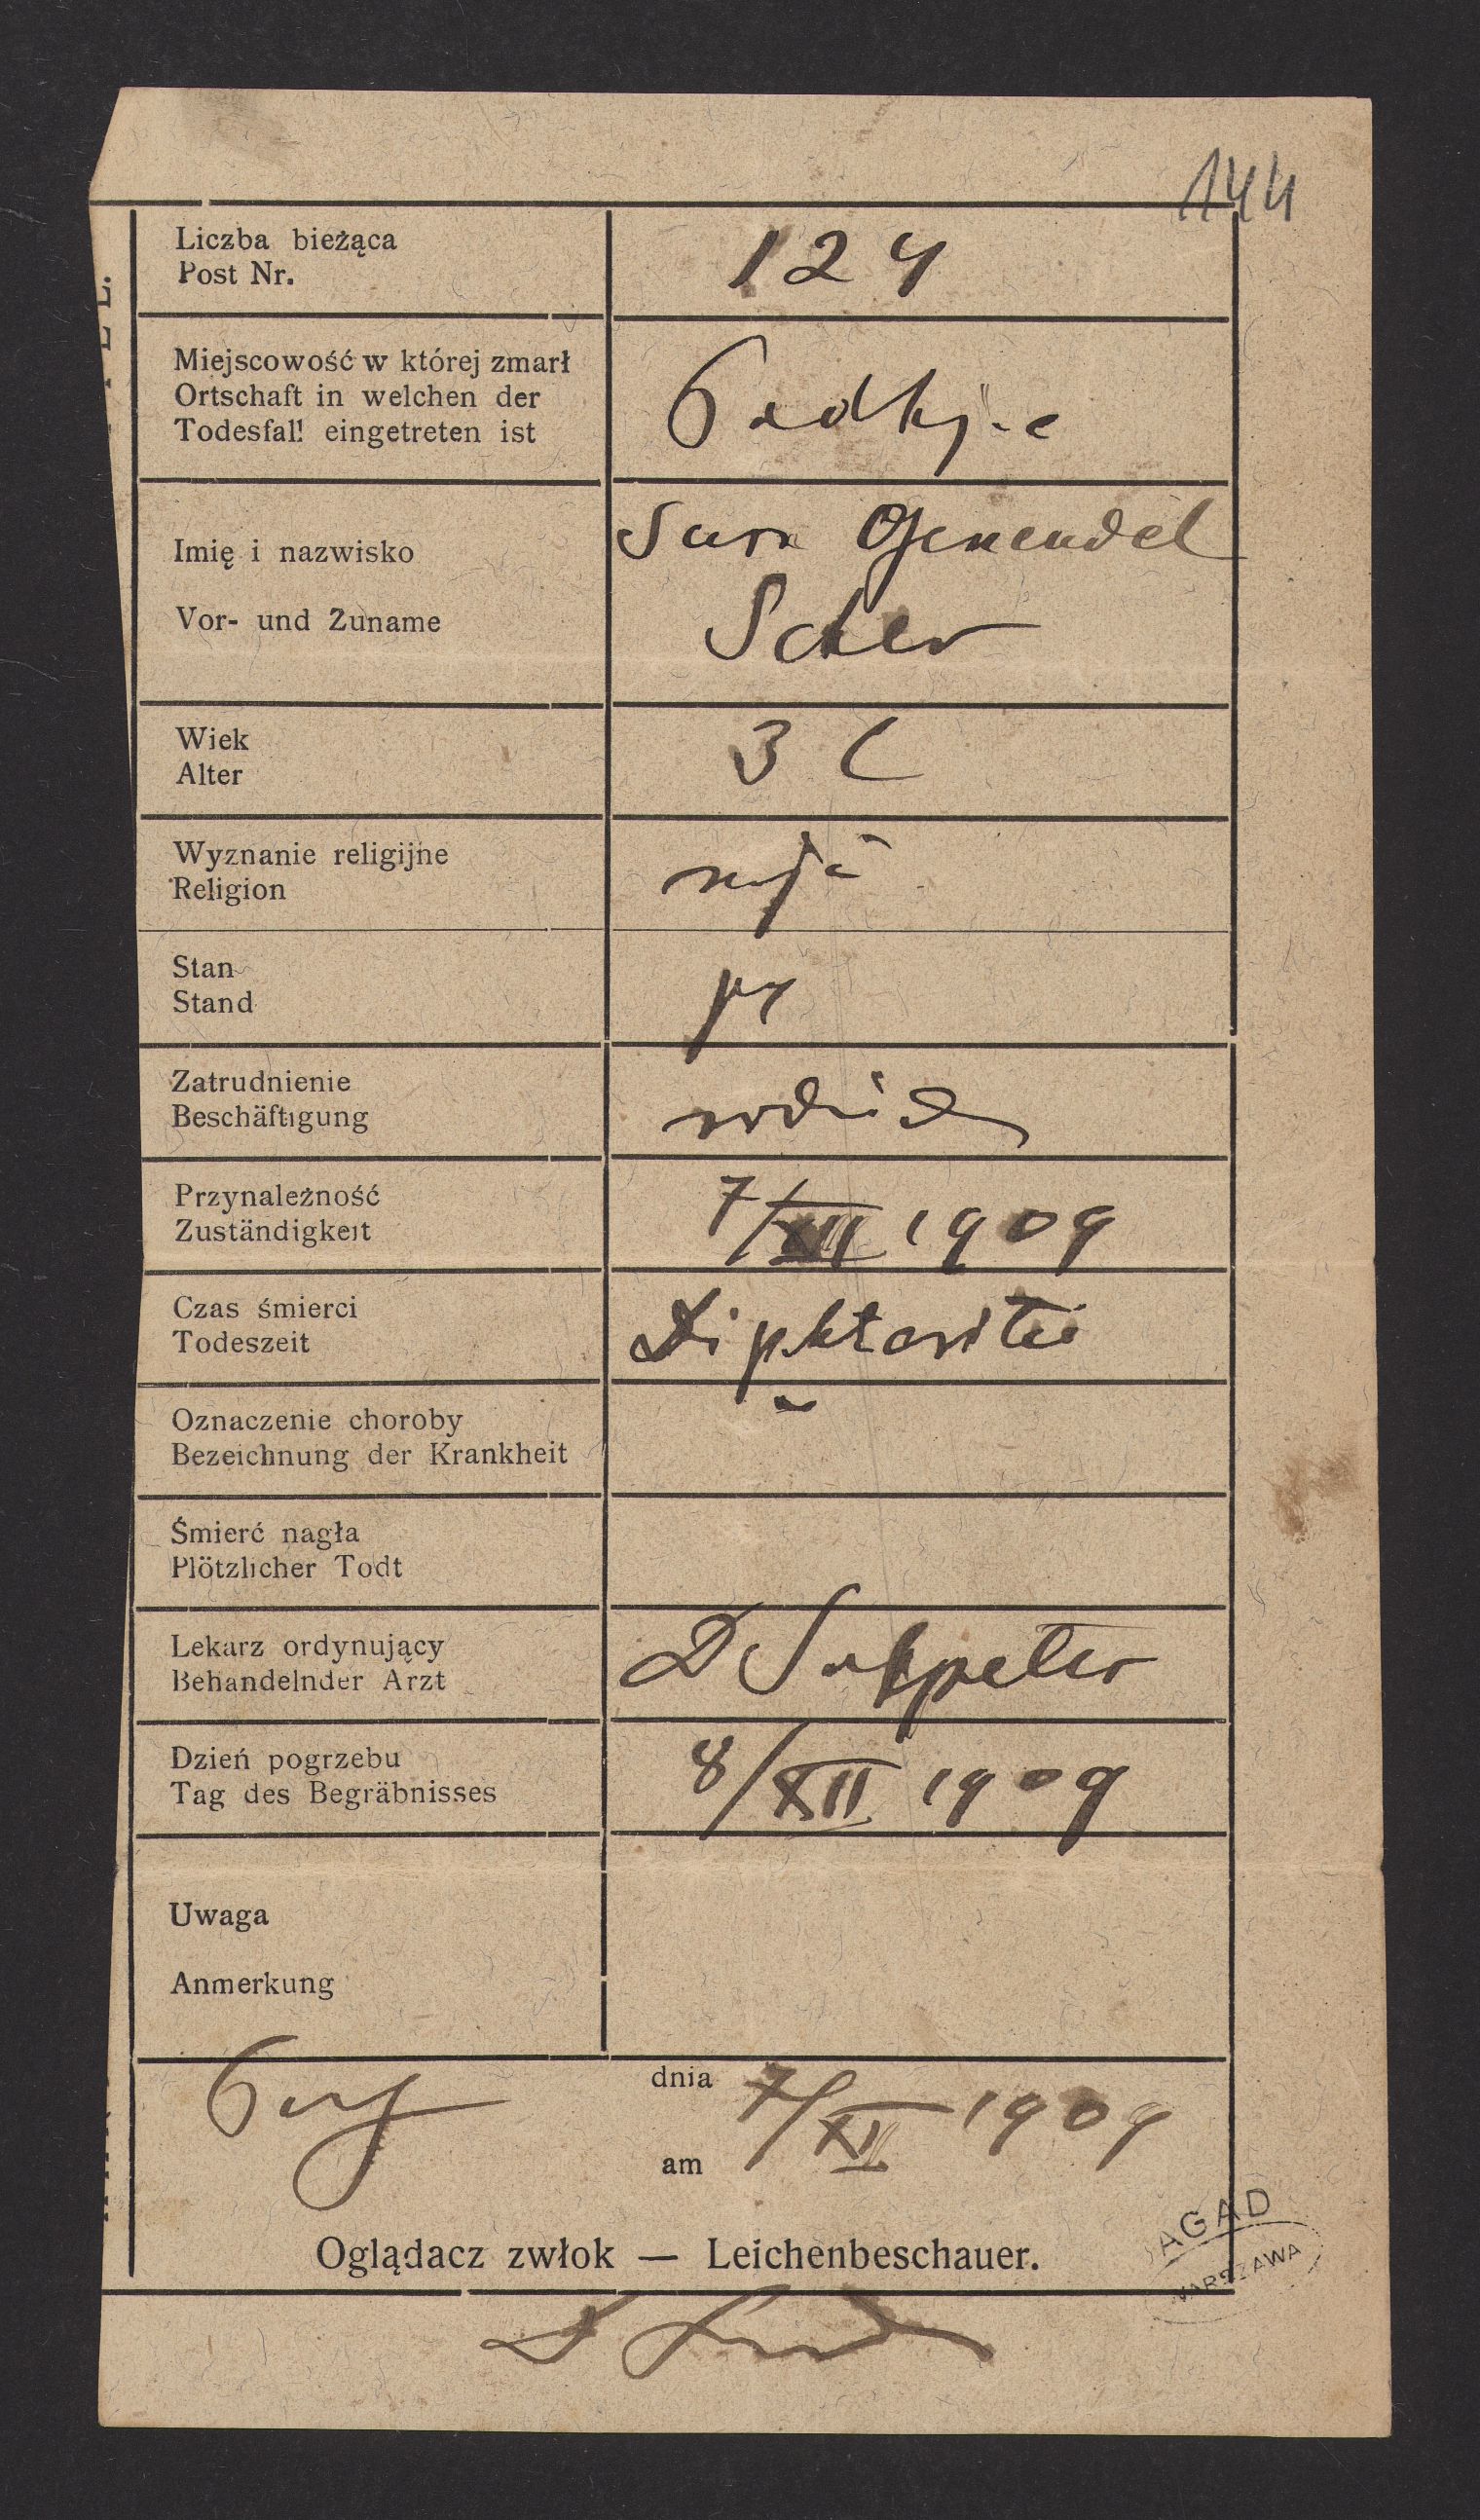 144
Liczba bieżąca
Post Nr.
124
Miejscowość w której zmarł
Ortschaft in welchen der
Todesfall eingetreten ist
Imię i nazwisko
Vor- und Zuname
Sara Genendel
Scher
Wiek
Alter
3 l
Wyznanie religijne
Religion
Stan
Stand
Zatrudnienie
Beschäftigung
Przynależność
Zuständigkeit
7/XII 1909
Czas śmierci
Todeszeit
Diphteritis
Oznaczenie choroby
Bezeichnung der Krankheit
Śmierć nagła
Plötzlicher Todt
Lekarz ordynujący
Behandelnder Arzt
D Salpeter
Dzień pogrzebu
Tag des Begräbnisses
8/XII 1909
Uwaga
Anmerkung
dnia
am
7/XII 1909
Oglądacz zwłok — Leichenbeschauer.
AGAD
WARSZAWA